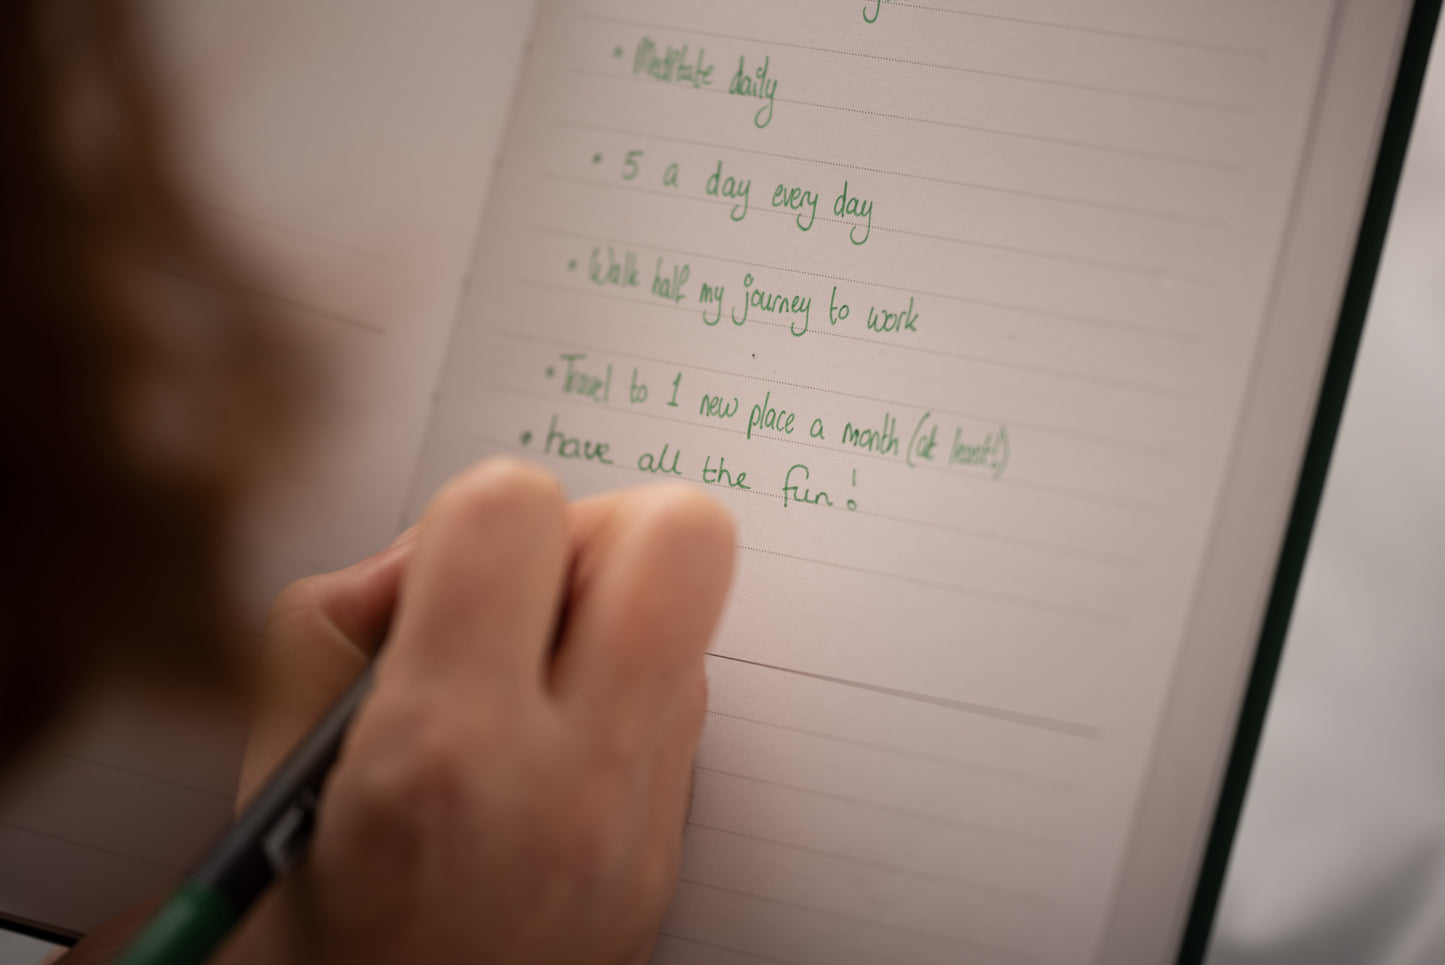 • Meditate daily
• 5 a day every day
• Walk half my journey to work
• Travel to 1 new place a month (at least!)
• have all the fun!